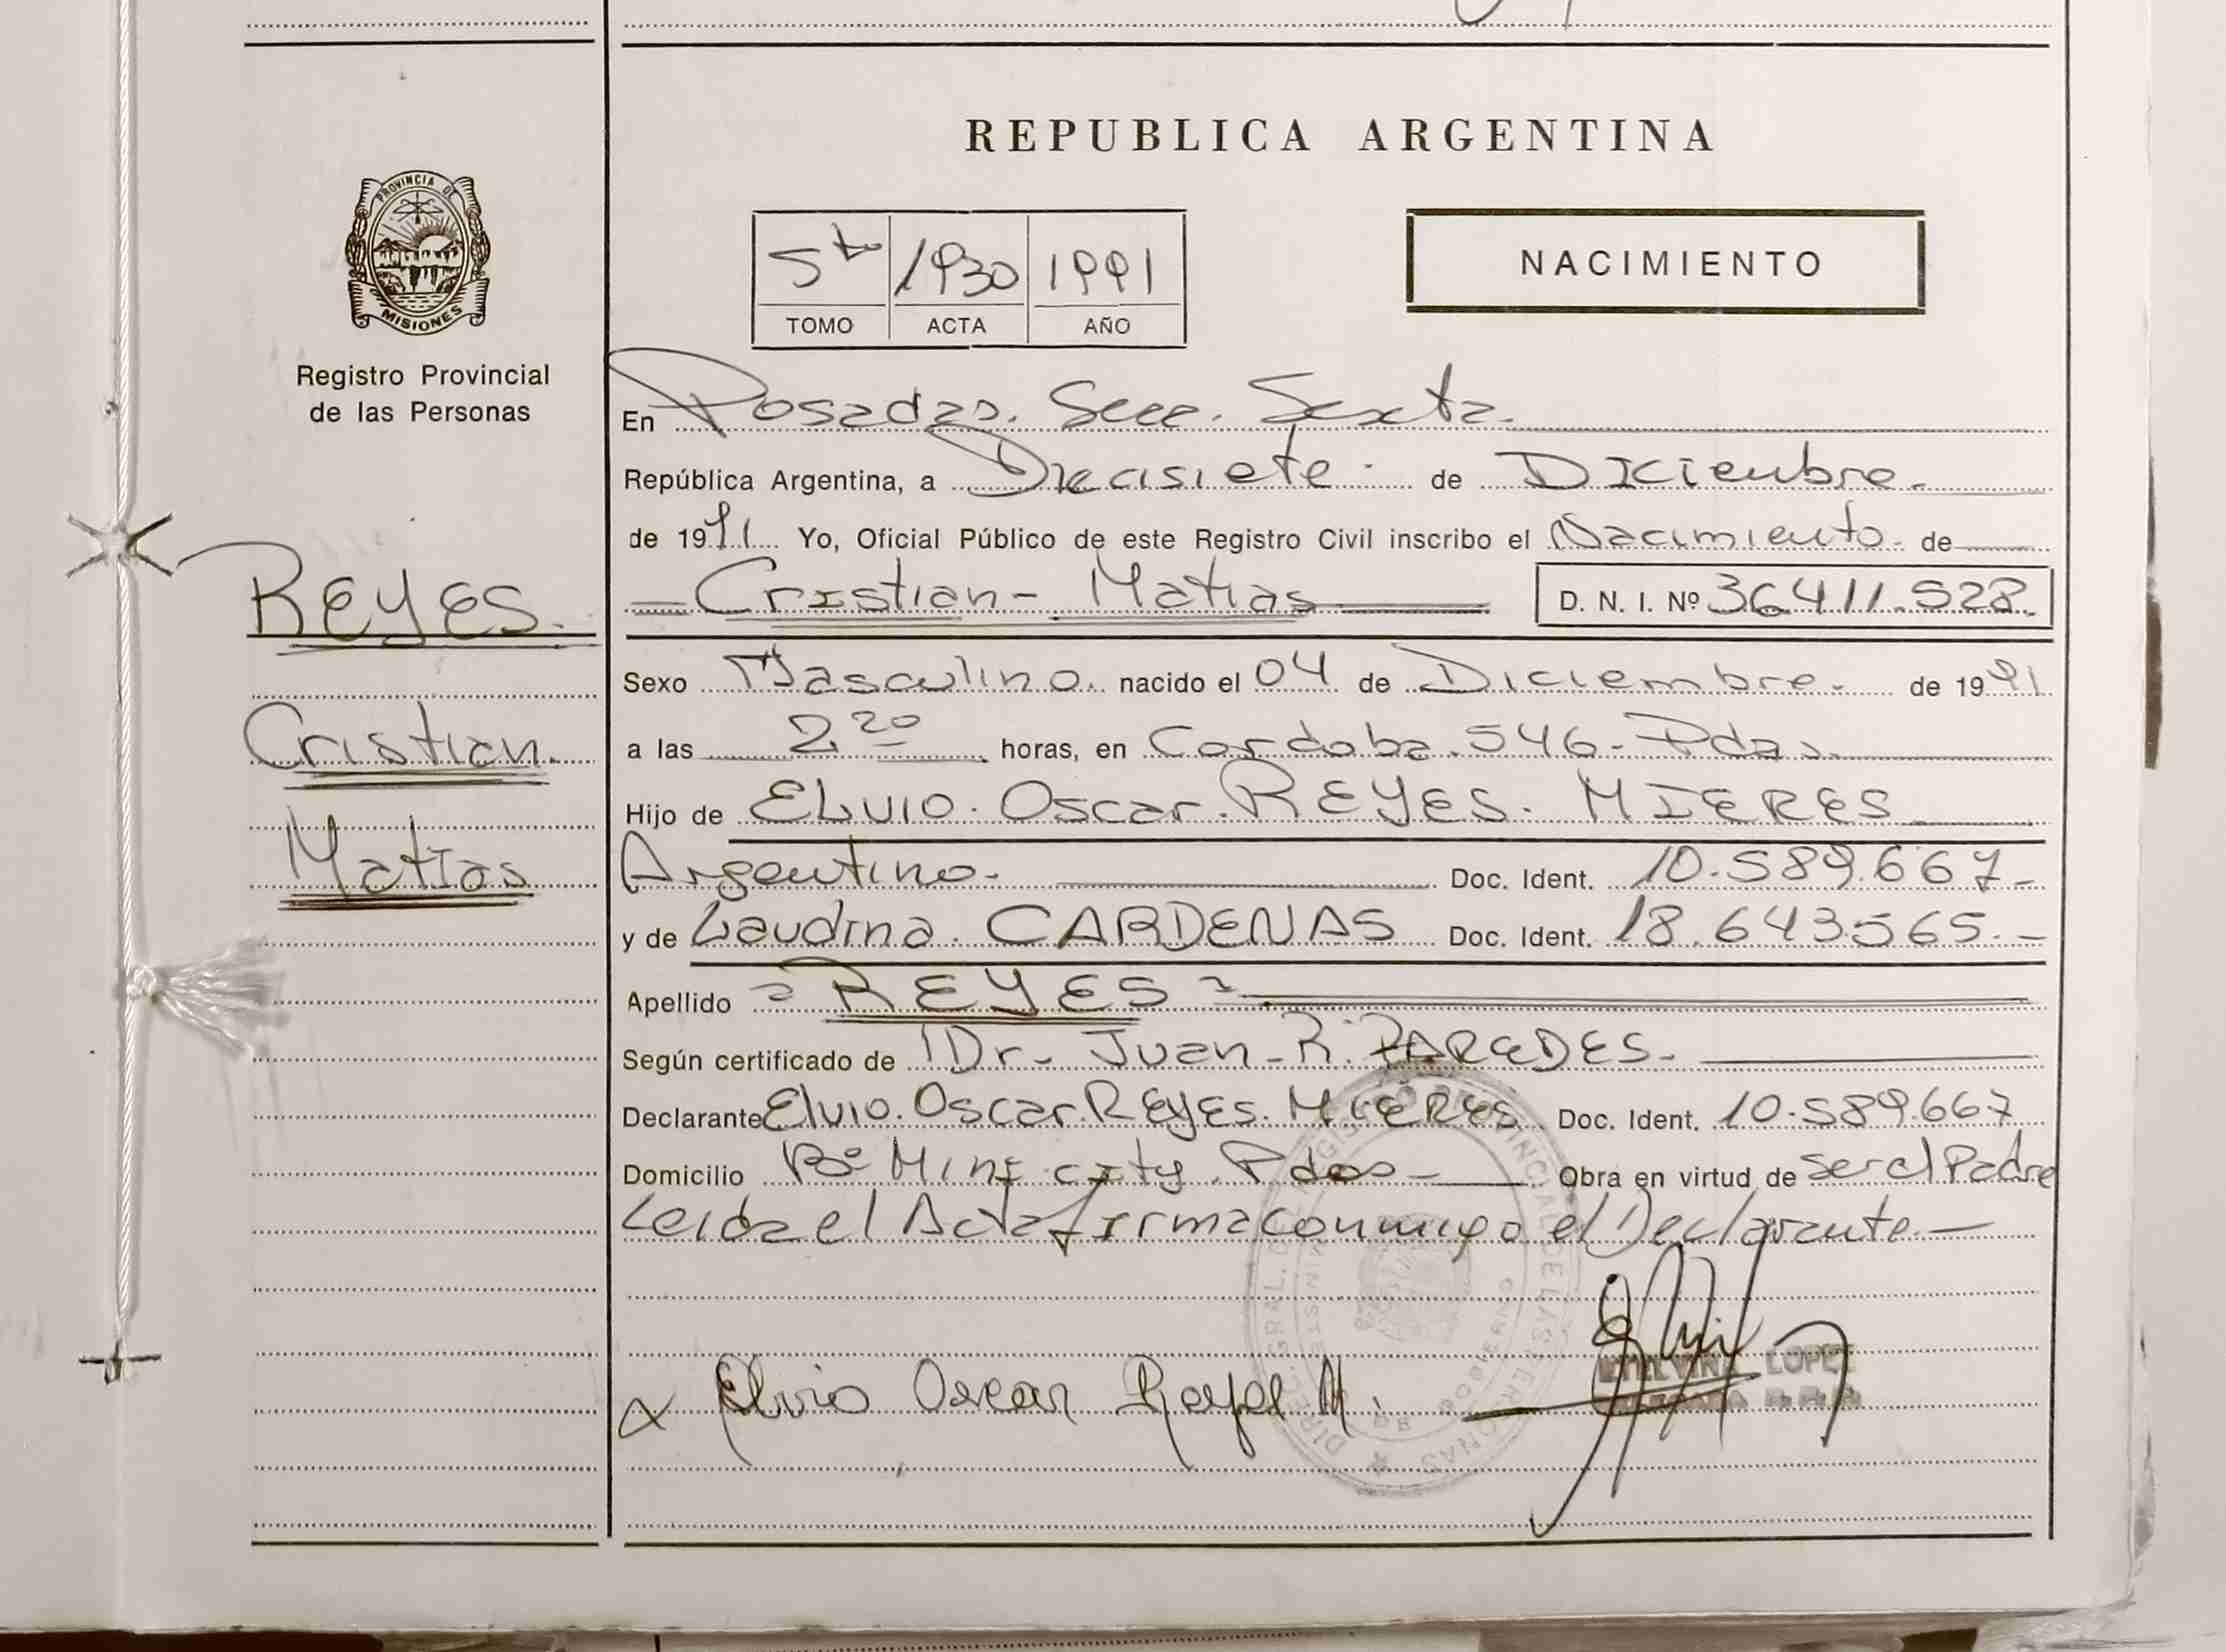 REPUBLICA ARGENTINA
PROVINCIA DE
MISIONES
Registro Provincial
de las Personas
5to 1930 1991
TOMO ACTA AÑO
NACIMIENTO
En Posadas. Secc. Sexta.
República Argentina, a Diecisiete de Diciembre.
de 1991 Yo, Oficial Público de este Registro Civil inscribo el Nacimiento de
REYES.
Cristian
Matías
Cristian - Matias D. N. I. Nº 36411.528.
Sexo Masculino. nacido el 04 de Diciembre. de 1991
a las 2 20 horas, en Cordoba. 546 - Pdas.
Hijo de ELVIO. Oscar. REYES. MIERES
Argentino. Doc. Ident. 10.589.667-
y de Laudina. CARDENAS Doc. Ident. 18.643.565.-
Apellido REYES
Según certificado de Dr. Juan - R. PAREDES.
Declarante Elvio. Oscar. REYES. MIERES Doc. Ident. 10.589.667
Domicilio Bº Mini city. Pdas - Obra en virtud de ser el Padre
Leida el Acta firma conmigo el Declarante.-
Elvio Oscar Reyes M.
LOPEZ